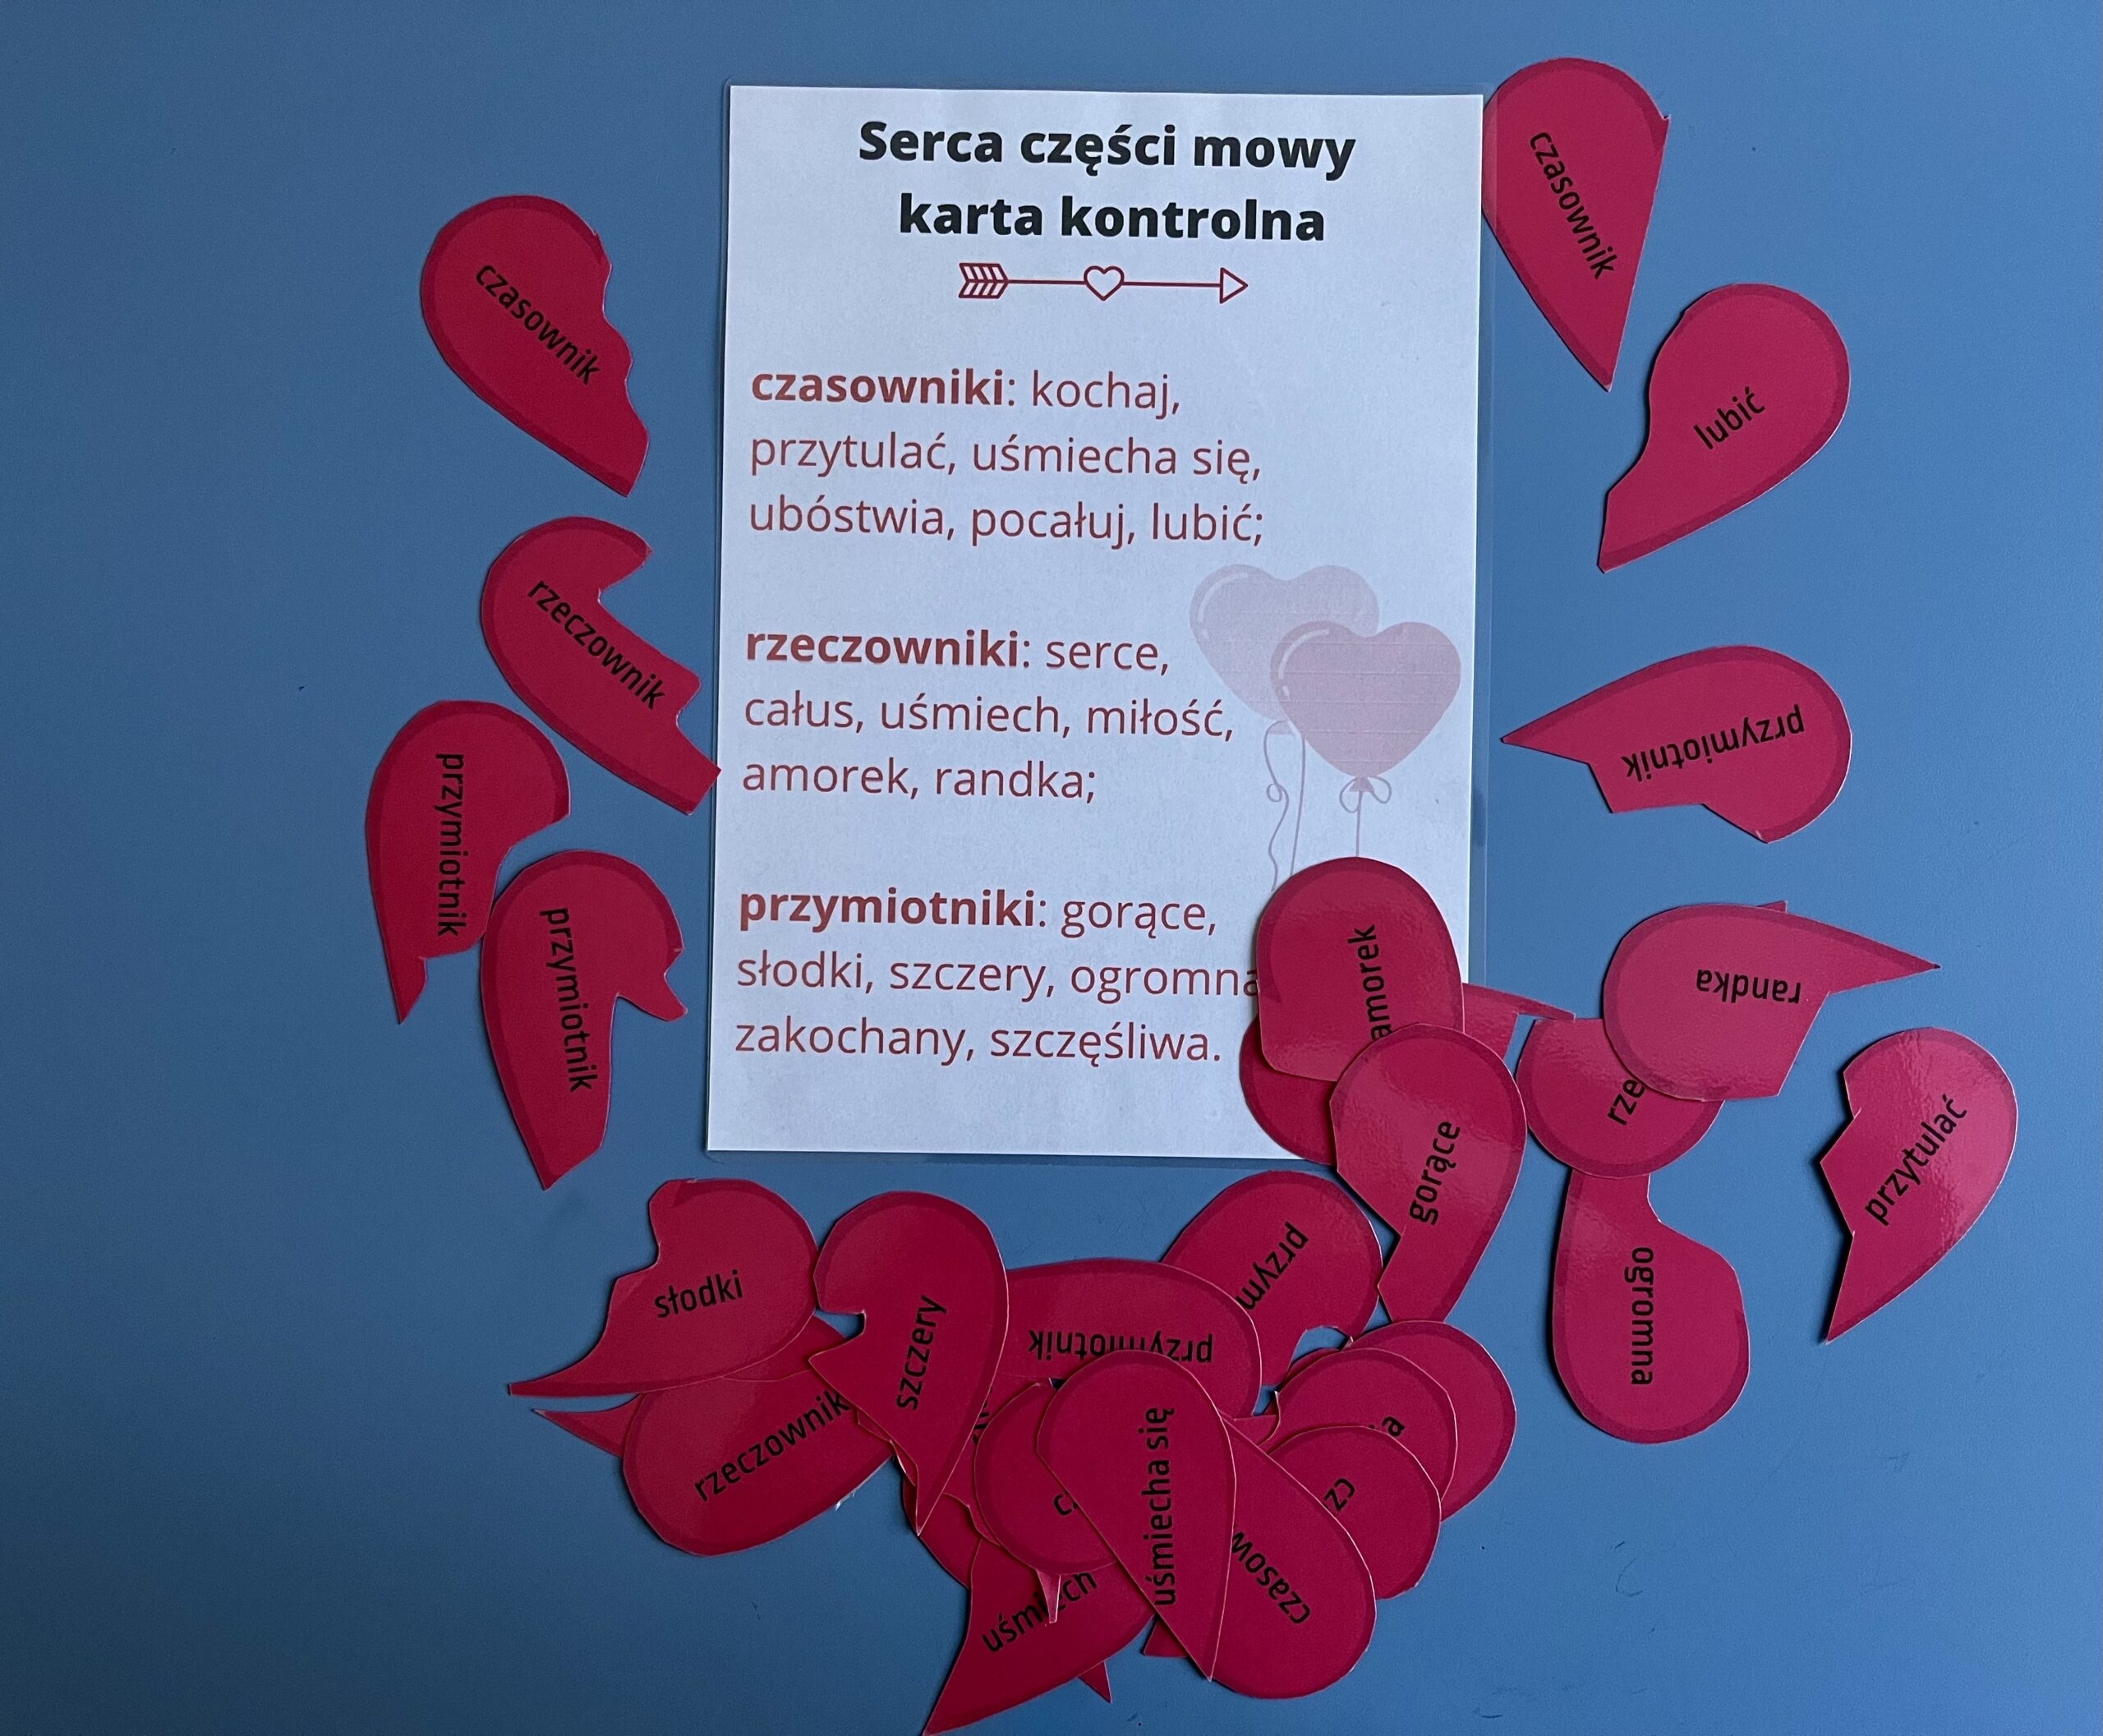 Serca części mowy
karta kontrolna
czasowniki: kochaj,
przytulać, uśmiecha się,
ubóstwia, pocałuj, lubić;
rzeczowniki: serce,
całus, uśmiech, miłość,
amorek, randka;
przymiotniki: gorące,
słodki, szczery, ogromna
zakochany, szczęśliwa.
czasownik
czasownik
lubić
rzeczownik
przymiotnik
przymiotnik
przymiotnik
amorek
randka
rze
gorące
przytulać
ogromna
słodki
szczery
przym
przymiotnik
rzeczownik
uśmiecha się
cz
czasow
uśmiech